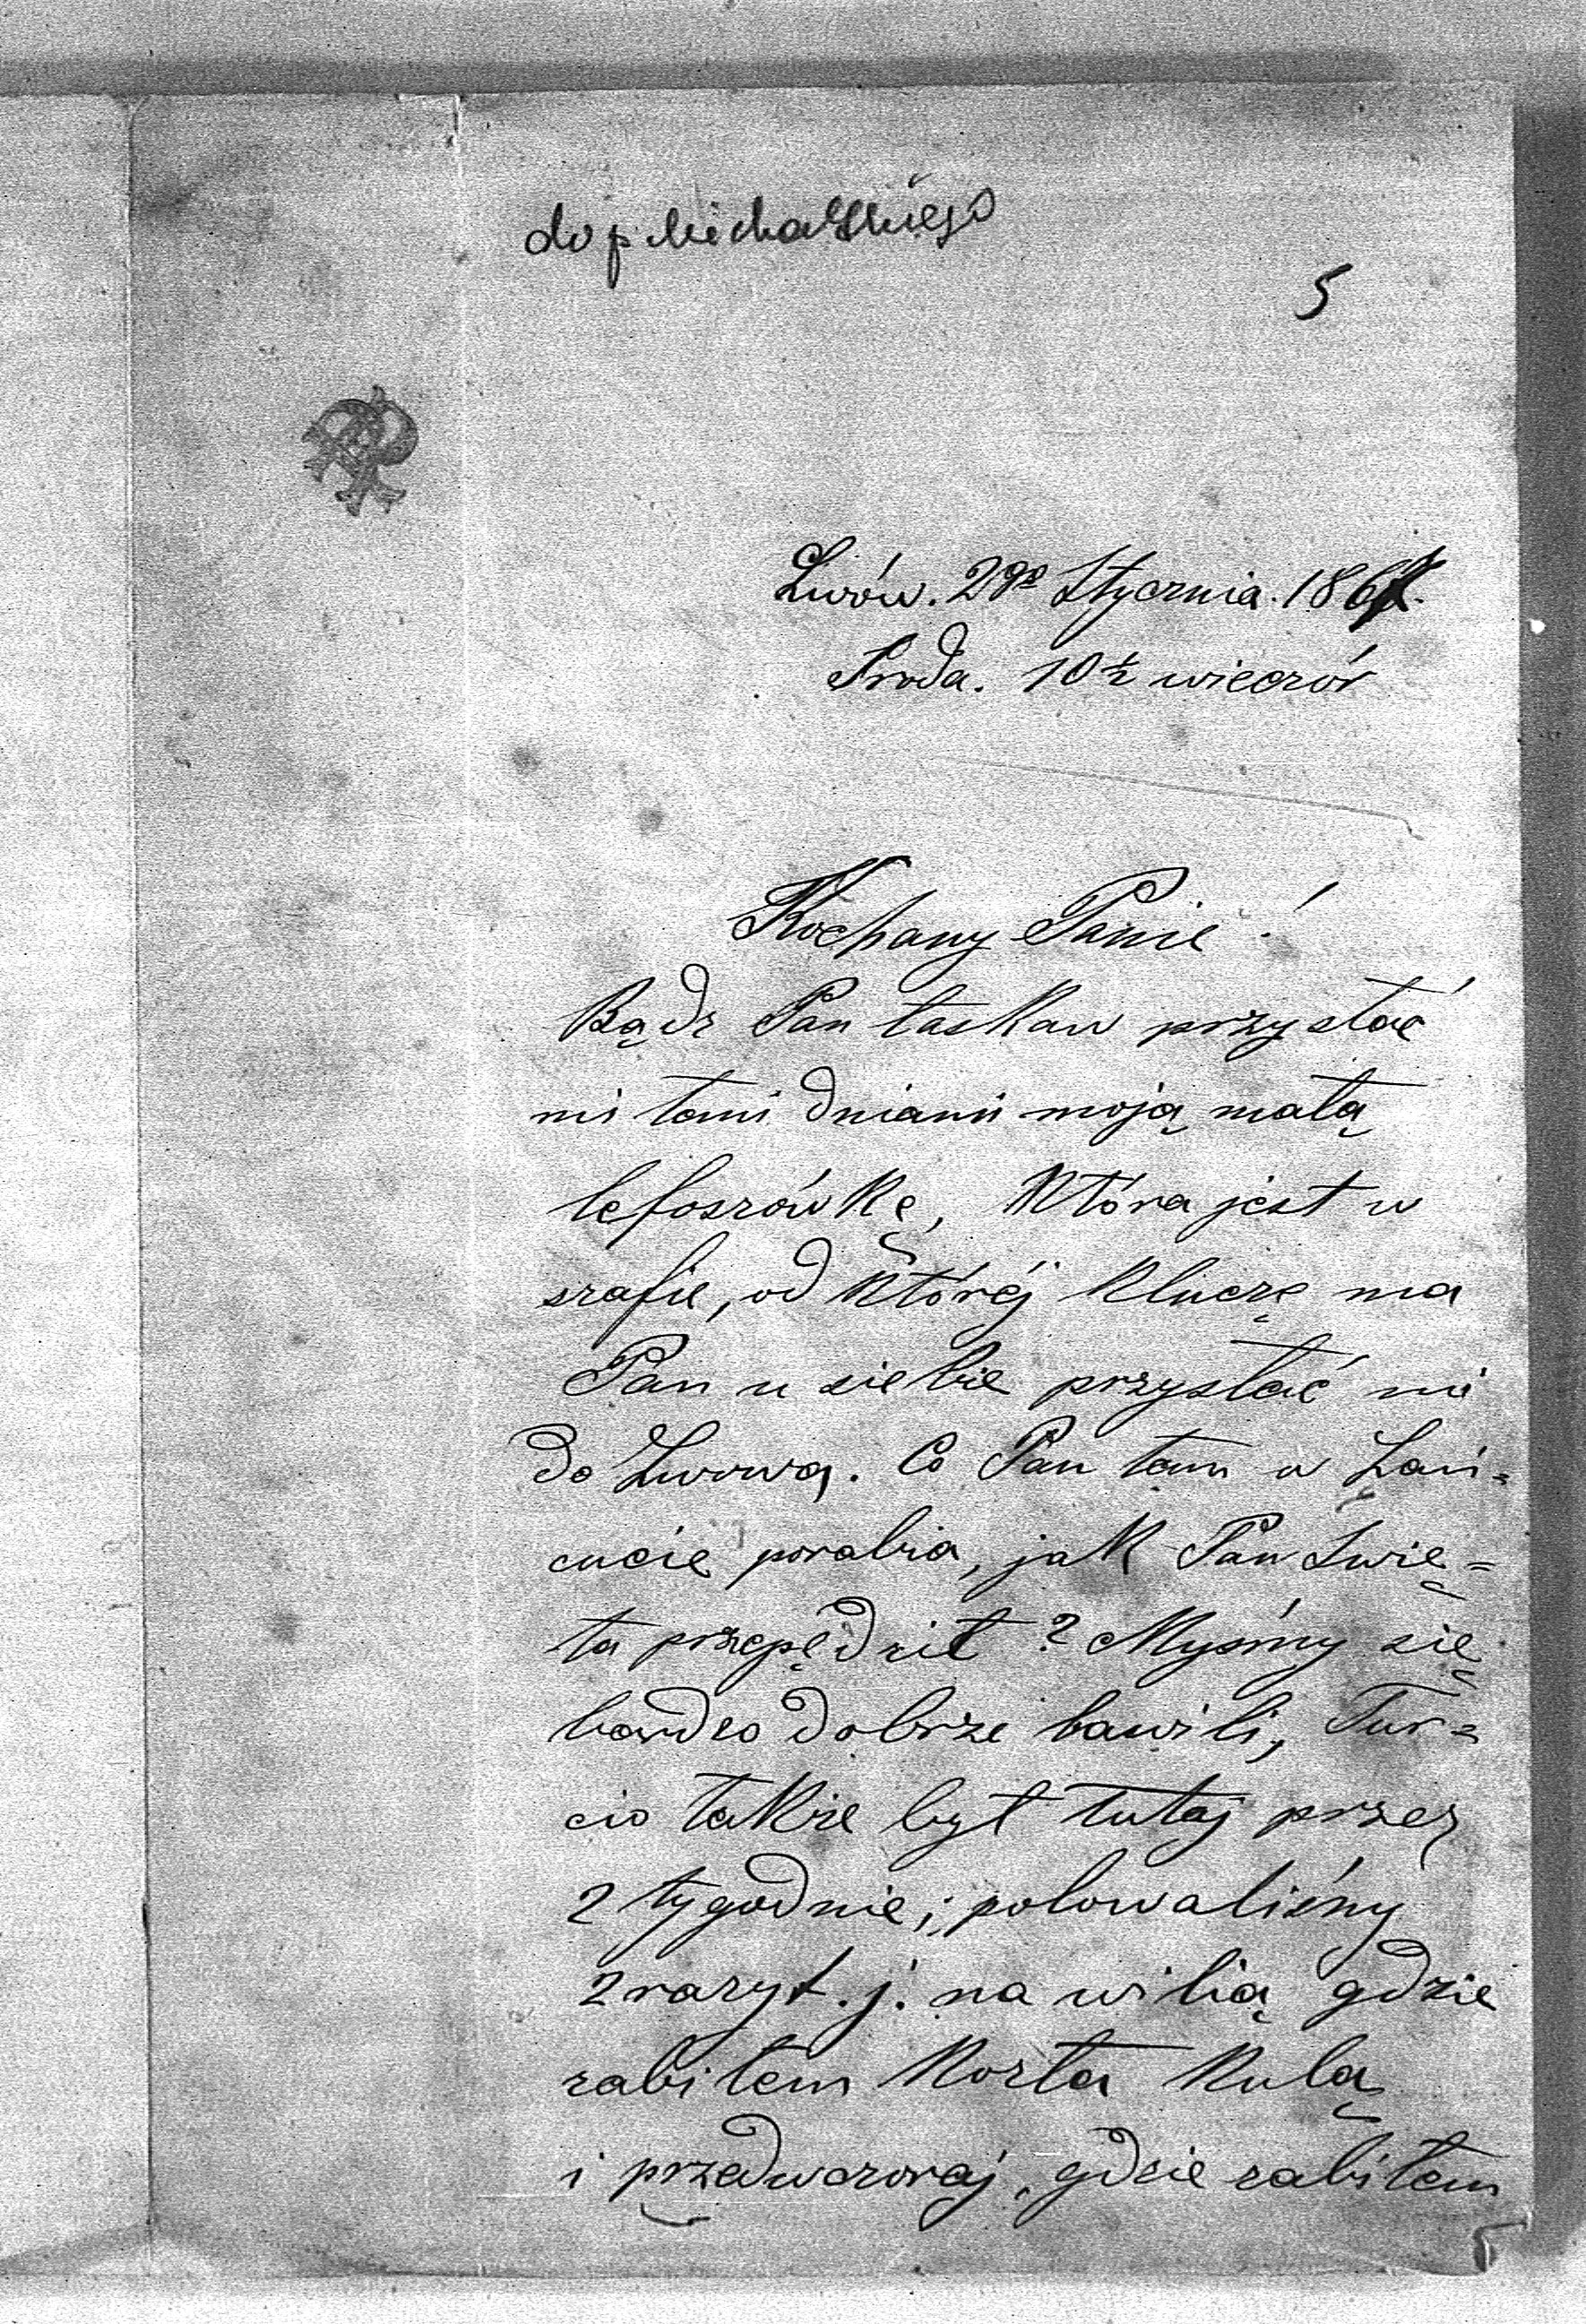 do p Michalskiego
5
RP
Lwów. 2go Stycznia. 186
Środa. 10½ wieczór
Kochany Panie!
Bądz Pan łaskaw przysłać
mi temi dniami moją małą
lefoszówkę, która jest w
szafie, od któréj klucze ma
Pan u siebie przysłać mi
do Lwowa. Co Pan tam w Łań=
cucie porabia, jak Pan Świę=
ta przepędził? Myśmy się
bardzo dobrze bawili, Tur=
cio także był tutaj przez
2 tygodnie; polowaliśmy
2 razy t. j. na wilią gdzie
zabiłem kozła kulą
i przedwczoraj, gdzie zabiłem
5